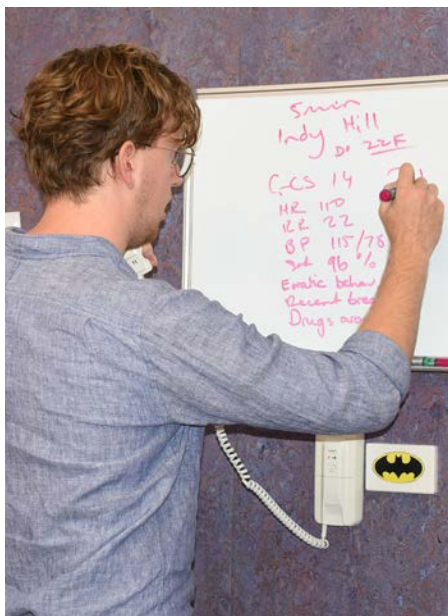 5min
Indy Hill
22F
GCS 14
HR 110
RR 22
BP 115/78
Sat 96 %
Erratic behav
Recent brea
Drugs